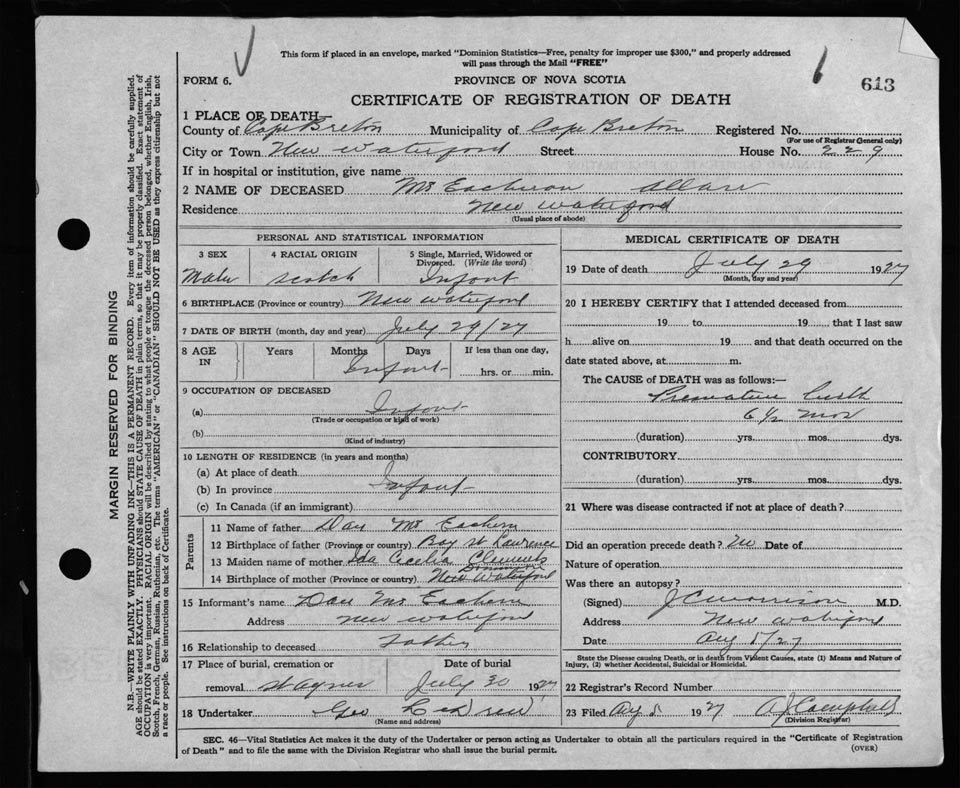 This form if placed in an envelope, marked "Dominion Statistics—Free, penalty for improper use $300," and properly addressed
will pass through the Mail "FREE"
FORM 6.
PROVINCE OF NOVA SCOTIA
613
CERTIFICATE OF REGISTRATION OF DEATH
1 PLACE OF DEATH
County of Cape Breton Municipality of Cape Breton Registered No.
(For use of Registrar General only)
City or Town New Waterford Street House No. 229
If in hospital or institution, give name
2 NAME OF DECEASED Mc Eachern Allan
Residence New Waterford
(Usual place of abode)
PERSONAL AND STATISTICAL INFORMATION
3 SEX 4 RACIAL ORIGIN 5 Single, Married, Widowed or Divorced. (Write the word)
Male Scotch Infant
6 BIRTHPLACE (Province or country) New Waterford
7 DATE OF BIRTH (month, day and year) July 29/27
8 AGE IN Years Months Days If less than one day,
Infant hrs. or min.
9 OCCUPATION OF DECEASED
(a) Infant
(Trade or occupation or kind of work)
(b)
(Kind of industry)
10 LENGTH OF RESIDENCE (in years and months)
(a) At place of death
(b) In province Infant
(c) In Canada (if an immigrant)
Parents
11 Name of father Dan Mc Eachern
12 Birthplace of father (Province or country) Bay St Lawrence
13 Maiden name of mother Ida Cecilia Clements
Dominion
14 Birthplace of mother (Province or country) New Waterford
15 Informant's name Dan Mc Eachern
Address New Waterford
16 Relationship to deceased Father
17 Place of burial, cremation or Date of burial
removal St Agnes July 30 1927
18 Undertaker Geo
(Name and address)
MEDICAL CERTIFICATE OF DEATH
19 Date of death July 29 1927
(Month, day and year)
20 I HEREBY CERTIFY that I attended deceased from
19 to 19 that I last saw
h alive on 19 and that death occurred on the
date stated above, at m.
The CAUSE of DEATH was as follows:—
Premature birth
6½ mos
(duration) yrs. mos. dys.
CONTRIBUTORY
(duration) yrs. mos. dys.
21 Where was disease contracted if not at place of death?
Did an operation precede death? No Date of
Nature of operation
Was there an autopsy?
(Signed) J C Morrison M.D.
Address New Waterford
Date Aug 5/27
State the Disease causing Death, or in death from Violent Causes, state (1) Means and Nature of
Injury, (2) whether Accidental, Suicidal or Homicidal.
22 Registrar's Record Number
23 Filed Aug 5 1927 A J Campbell
(Division Registrar)
SEC. 46—Vital Statistics Act makes it the duty of the Undertaker or person acting as Undertaker to obtain all the particulars required in the "Certificate of Registration
of Death" and to file the same with the Division Registrar who shall issue the burial permit.
(OVER)
MARGIN RESERVED FOR BINDING
N.B.—WRITE PLAINLY WITH UNFADING INK—THIS IS A PERMANENT RECORD. Every item of information should be carefully supplied.
AGE should be stated EXACTLY. PHYSICIANS should STATE CAUSE OF DEATH in plain terms, so that it may be properly classified. Exact statement of
OCCUPATION is very important. RACIAL ORIGIN will be described by stating to what people or tongue the deceased person belonged, whether English, Irish,
Scotch, French, German, Russian, Ruthenian, etc. The terms "AMERICAN" or "CANADIAN" SHOULD NOT BE USED as they express citizenship but not
a race or people. See instructions on back of Certificate.